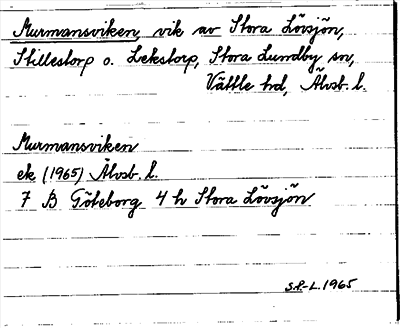 Murmansviken, vik av Stora Lövsjön,
Stillestorp o. Lekstorp, Stora Lundby sn,
Vättle hd, Älvsb. l.
Murmansviken
ek (1965) Älvsb. l.
7 B Göteborg 4 h Stora Lövsjön
S.P.-L. 1965